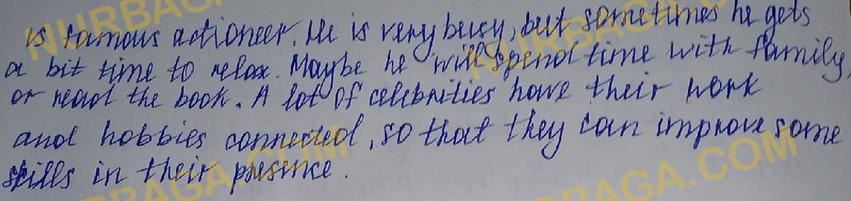 is famous actioneer. He is very busy, but sometimes he gets
a bit time to relax. Maybe he will spend time with family,
or read the book. A lot of celebrities have their work
and hobbies connected, so that they can improve some
skills in their presince.
NURBAGA.COM